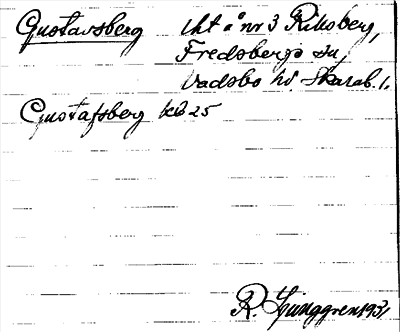 Gustavsberg lht å nr 3 Riksberg,
Fredsbergs sn,
Vadsbo hd. Skarab. l.
Gustafsberg kb 25
R. Ljunggren 1931